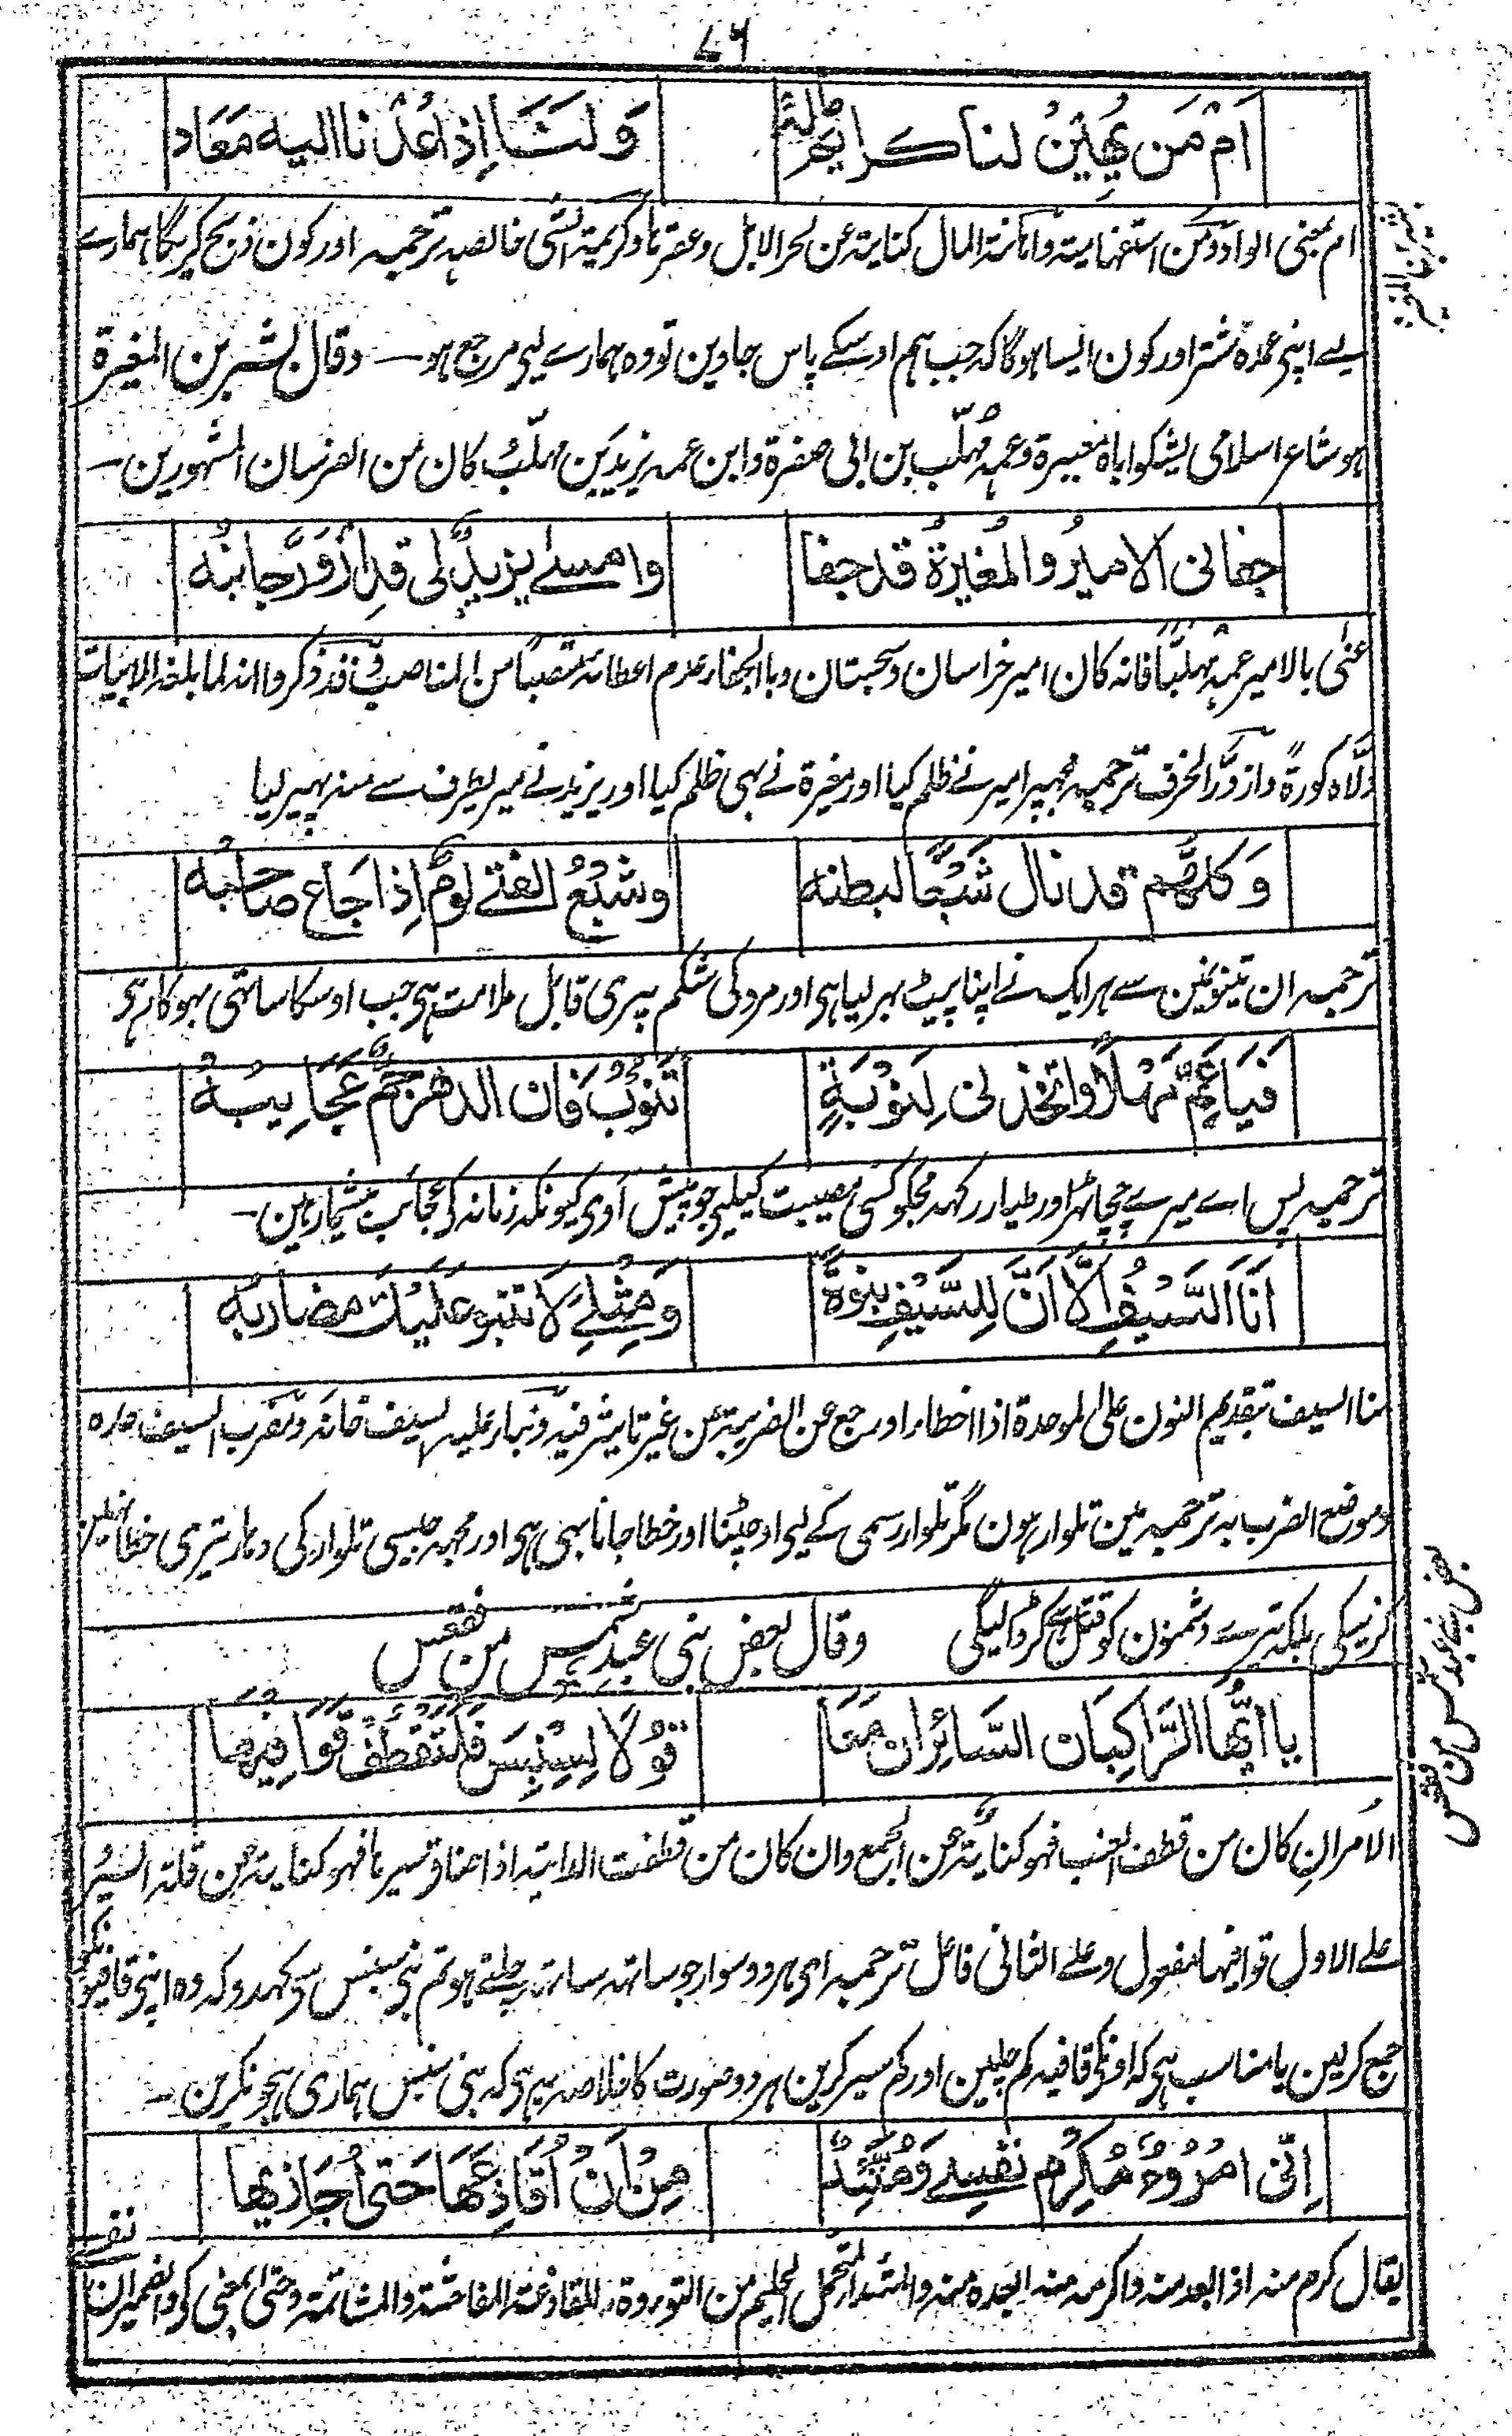 ۷۶
اَمْ مَن يُهِيْنُ لنا كرائمَ مالِهٖ وَلنَا اِذا عُدْنا اليه مَعَاد
ام بمعنی الواو ومن استفهامیة واهانة المال کنایة عن نحر الابل وعقرها وکریمة الشی خالصه ترجمہ اور کون ذبح کریگا ہمارے
لیے اپنی عمدہ شتر اور کون ایسا ہوگا کہ جب ہم اوسکے پاس جاوین تو وہ ہمارے لیے مرجع ہو — وقال بشر بن المغیرة
ہو شاعر اسلامی یشکو اباه مغیرة وعمه مُهلّب بن ابی صفرة وابن عمه یزید بن مهلّب کان من الفرسان المشهورین —
بشر بن المغیرة
جفانى الاميرُ والمُغيرةُ قد جفا وامسىٰ يزيدٌ لى قدِ ازْوَرَّ جانبُه
عنٰی بالامیر عمه مهلبًا فانه کان امیر خراسان وسجستان وبالجفاء عدم اعطائه منصبًا من المناصب وقد ذکروا انه لما بلغه الابیات
ولّاه کورةً وازورَّ انحرف ترجمہ مجہپر امیر نے ظلم کیا اور مغیرة نے بہی ظلم کیا اور یزید نے میریطرف سے منہ پہیر لیا
وَكلهم قد نال شَبْعًا لبطنه وشبْعُ الفتے لومٌ اِذا جَاع صاحبُه
ترجمہ ان تینونین سے ہر ایک نے اپنا پیٹ بہر لیا ہی اور مرد کی شکم سیری قابل ملامت ہی جب اوسکا ساتہی بہوکا رہی
فَيَا عَمِّ مَهْلاً واتخذنى لِنَوْبَةٍ تَنوْبُ فَان الدهْرَ جَمٌّ عَجَايِبُهٗ
ترجمہ پس اے میرے چچا ٹہر اور طیار رکہہ مجکو کسی مصیبت کیلیے جو پیش آوی کیونکہ زمانہ کی عجائب بیشمار ہین —
اَنَا السَّيْفُ اِلَّا اَنَّ لِلسَّيْفِ نبْوَةً وَمِثْلِے لَا تنبو عَلَيْكَ مضاربُه
نبا السیف بتقدیم النون علی الموحدة اذا اخطاء ورجع عن الضریبة من غیر تاثیر فیه ونبا علیه السیف خانه ومضرب السیف حده
وموضع الضرب به ترجمہ مین تلوار ہون مگر تلوار رسمی کے لیے اوچٹنا اور خطا جانا بہی ہی اور مجہہ جیسی تلوار کی دہار تیری خطا نہین
کریگی بلکہ تیرے دشمنون کو قتل ہی کر ڈالیگی وقال بعض بنی عبد شمس من فقعس
بعض بنی عبد شمس من فقعس
يا ايُّها الرَّاكِبَان السَّائِرانِ مَعَا قوْلَا لِسِنْبِسَ فَلْتَقْطِفْ قَوَافِيْهَا
الامر ان کان من قطف العنب فهو کنایة عن الجمع وان کان من قطفت الدابة اذا ضاق سیرها فهو کنایة عن قلة السیر
علے الاول قوافیها مفعول وعلے الثانی فاعل ترجمہ ای ہر دو سوار جو ساتہہ ساتہہ چلتے ہو تم بنی سنبس سے کہدو کہ وہ اپنی قافیونکو
جمع کرلین یا مناسب ہی کہ اونکی قافیہ کم چلین اور کم سیر کرین ہر دو صورت کا خلاصہ یہ ہی کہ بنی سنبس ہماری ہجو نکرین —
اِنّى امرُؤٌ مُكرِمٌ نفسِے وَمُتَّئِدٌ مِنْ اَنْ اُقَاذِعَهَا حَتى اُجَازِيها
یقال کرم منه اذا بعد منه واکرمه منه ابعده منه والمتئد المتحمل الحلیم من التودة والمقاذعة المفاحشة والمشاتمة وحتی بمعنی کی والضمیران